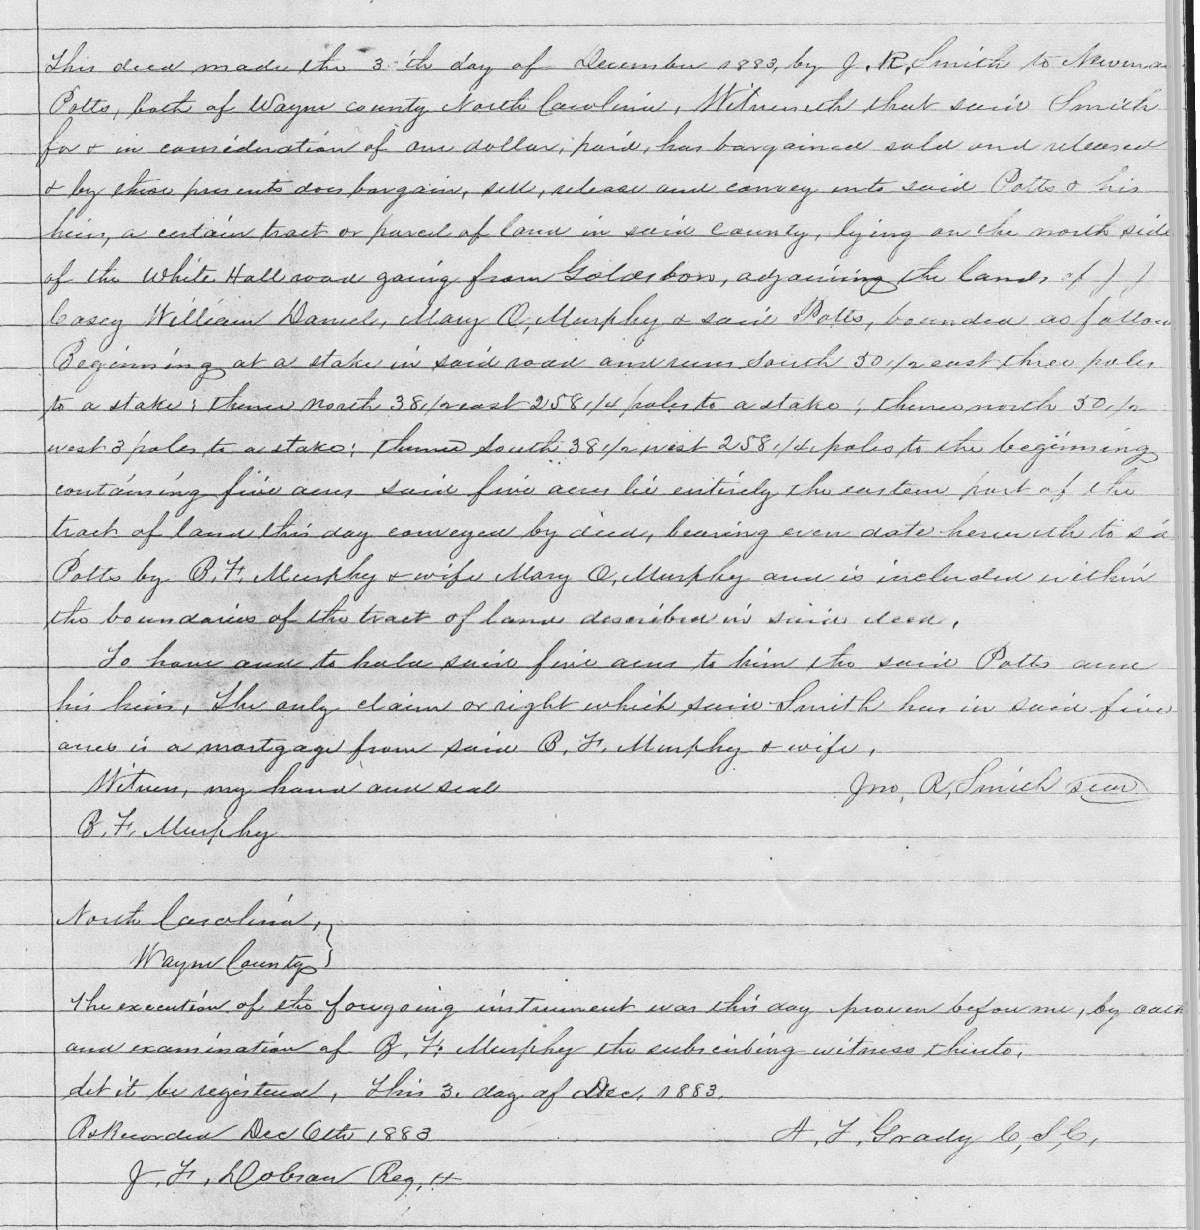 This deed made the 3.th day of December 1883, by J. R. Smith to Newman
Potts, both of Wayne county North Carolina, Witnesseth that said Smith
for & in consideration of one dollar, paid, has bargained sold and released
& by these presents does bargain, sell, release and convey unto said Potts & his
heirs, a certain tract or parcel of land in said County, lying on the north side
of the White Hall road going from Goldsboro, adjoining the lands of J J
Casey William Daniel, Mary O, Murphy & said Potts, bounded as follow
Beginning at a stake in said road and runs South 50 1/2 east three poles
to a stake; thence North 38 1/2 east 258 1/4 poles to a stake; thence north 50 1/2
west 3 poles to a stake; thence South 38 1/2 west 258 1/4 poles to the beginning
containing five acres said five acres lie entirely the eastern part of the
tract of land this day conveyed by deed, bearing even date herewith to s'd
Potts by B. F. Murphy & wife Mary O, Murphy and is included within
the boundaries of the tract of land described in said deed.
To have and to hold said five acres to him the said Potts and
his heirs, The only claim or right which said Smith has in said five
acres is a mortgage from said B. F. Murphy & wife.
Witness, my hand and seal Jno, R, Smith seal
B. F. Murphy
North Carolina,
Wayne County }
The execution of the foregoing instrument was this day proven before me, by oath
and examination of B. F. Murphy the subscribing witness thereto.
Let it be registered, This 3. day of Dec. 1883.
Recorded Dec 6th 1883 A, F, Grady C, S, C,
J. F. Dobson Reg,